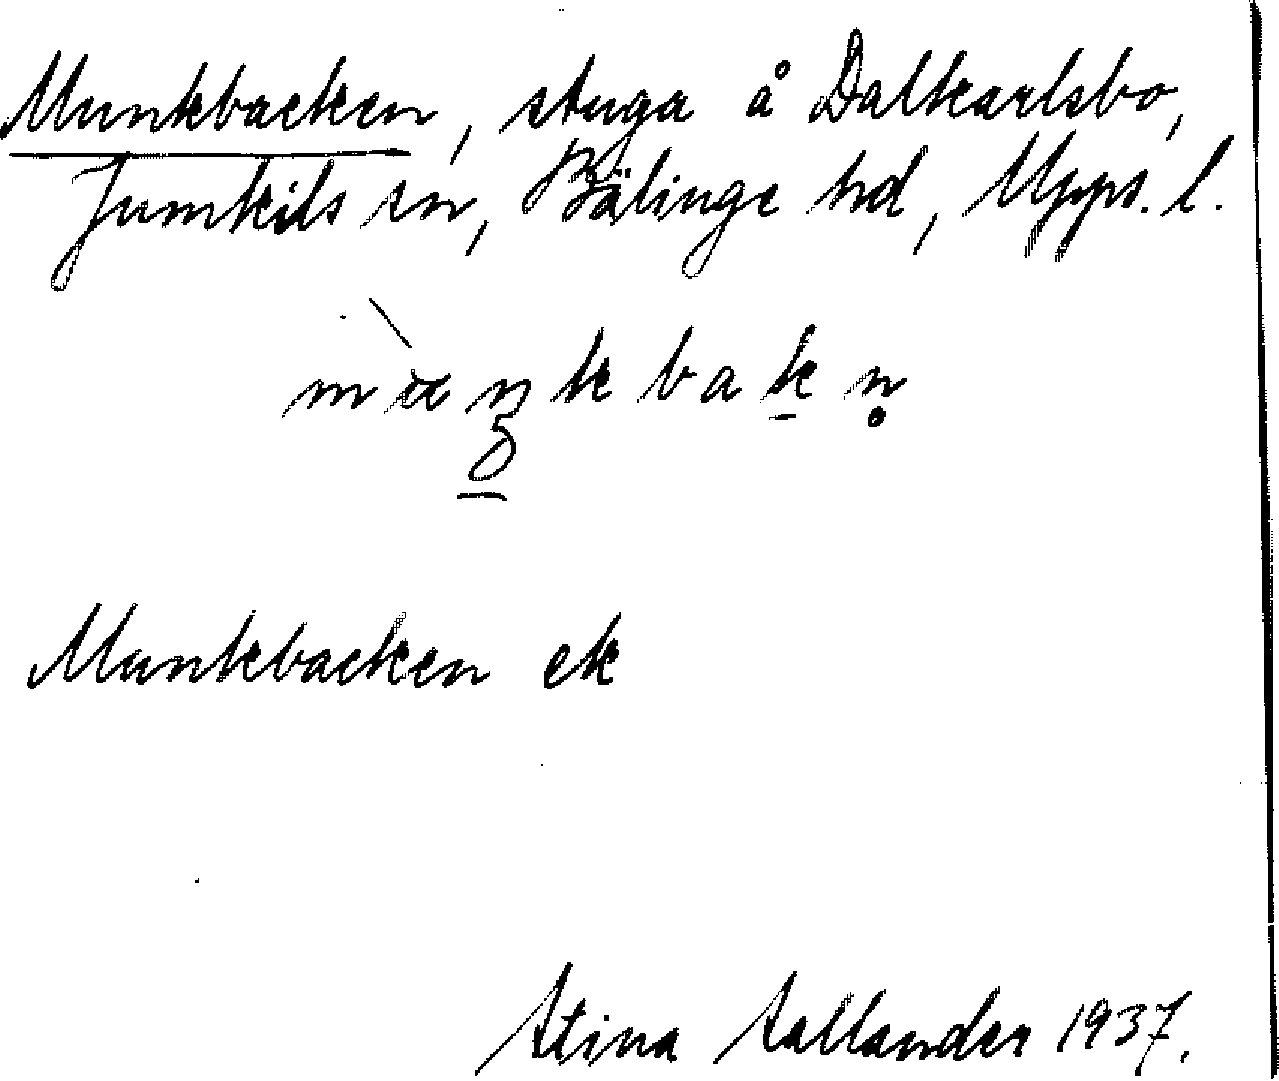 Munkbacken, stuga å Dalkarlsbo,
Jumkils sn, Bälinge hd, Upps. l.
Munkbacken ek
Stina Sallander 1937.